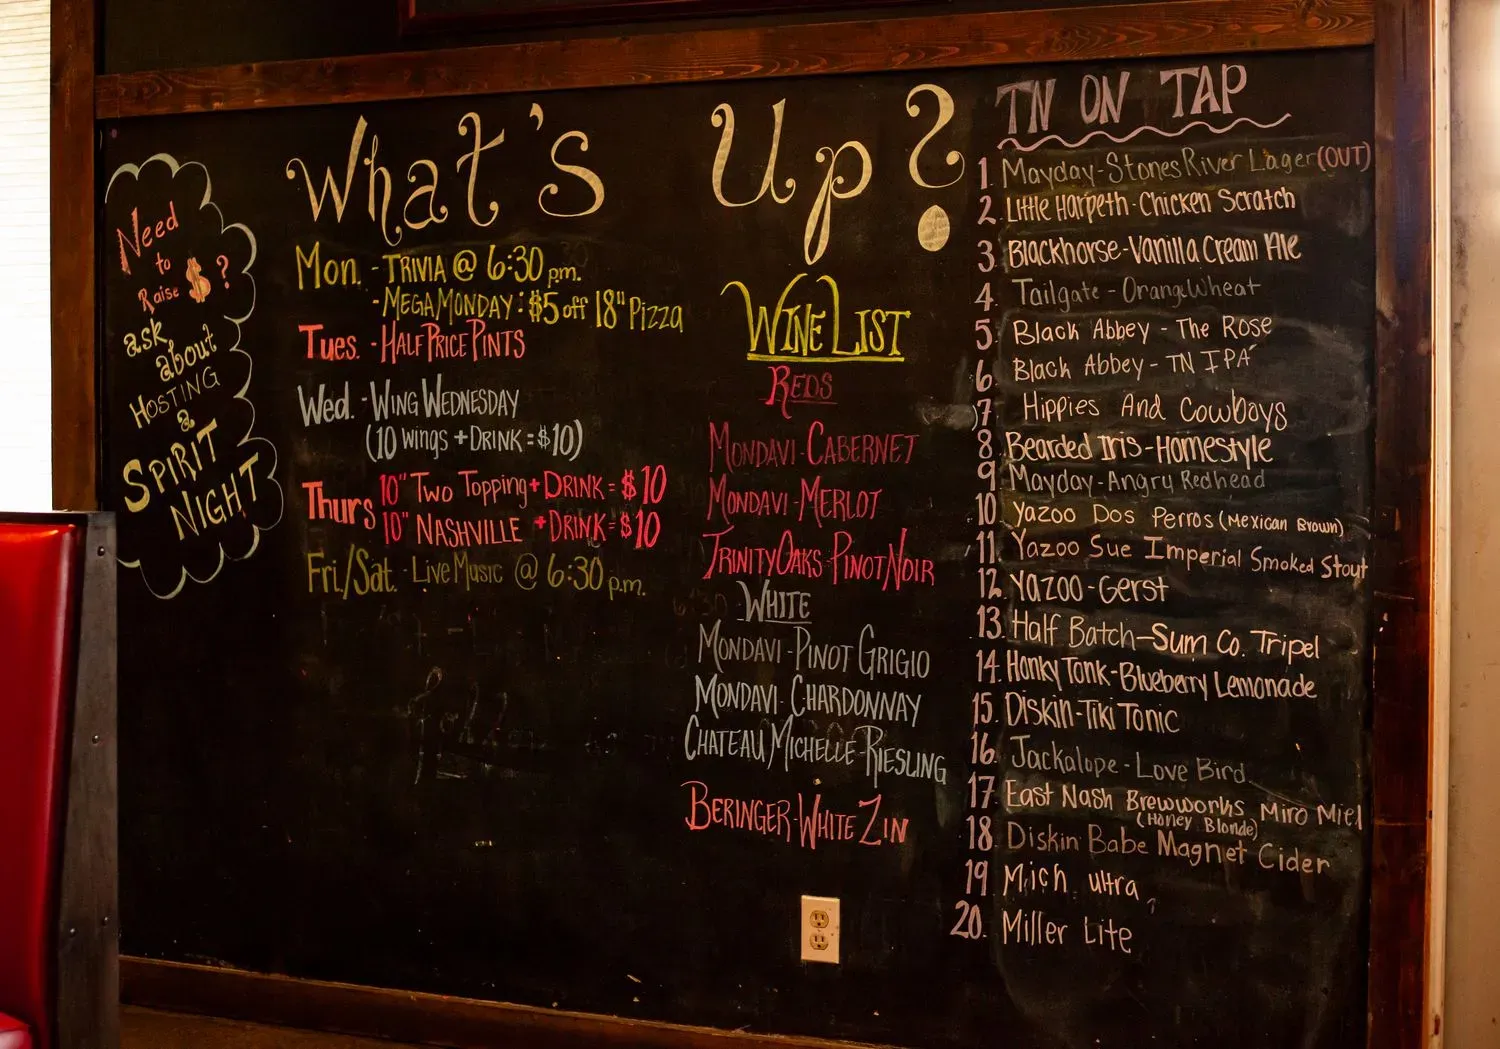 Need
to
Raise $ ?
ask
about
HOSTING
a
SPIRIT
NIGHT
What's Up?
Mon. - TRIVIA @ 6:30 p.m.
- MEGA MONDAY: $5 off 18" Pizza
Tues. - HALF PRICE PINTS
Wed. - WING WEDNESDAY
(10 wings + DRINK = $10)
Thurs 10" Two Topping + DRINK = $10
10" NASHVILLE + DRINK = $10
Fri./Sat. - Live Music @ 6:30 p.m.
WINE LIST
REDS
MONDAVI - CABERNET
MONDAVI - MERLOT
TRINITY OAKS - PINOT NOIR
WHITE
MONDAVI - PINOT GRIGIO
MONDAVI - CHARDONNAY
CHATEAU MICHELLE - RIESLING
BERINGER - WHITE ZIN
TN ON TAP
1. Mayday - Stones River Lager (OUT)
2. Little Harpeth - Chicken Scratch
3. Blackhorse - Vanilla Cream Ale
4. Tailgate - Orange Wheat
5. Black Abbey - The Rose
6. Black Abbey - TN IPA
7. Hippies And Cowboys
8. Bearded Iris - Homestyle
9. Mayday - Angry Redhead
10. Yazoo Dos Perros (Mexican Brown)
11. Yazoo Sue Imperial Smoked Stout
12. Yazoo - Gerst
13. Half Batch - Sum Co. Tripel
14. Honky Tonk - Blueberry Lemonade
15. Diskin - Tiki Tonic
16. Jackalope - Love Bird
17. East Nash Brewworks Miro Miel
(Honey Blonde)
18. Diskin Babe Magnet Cider
19. Mich ultra
20. Miller Lite